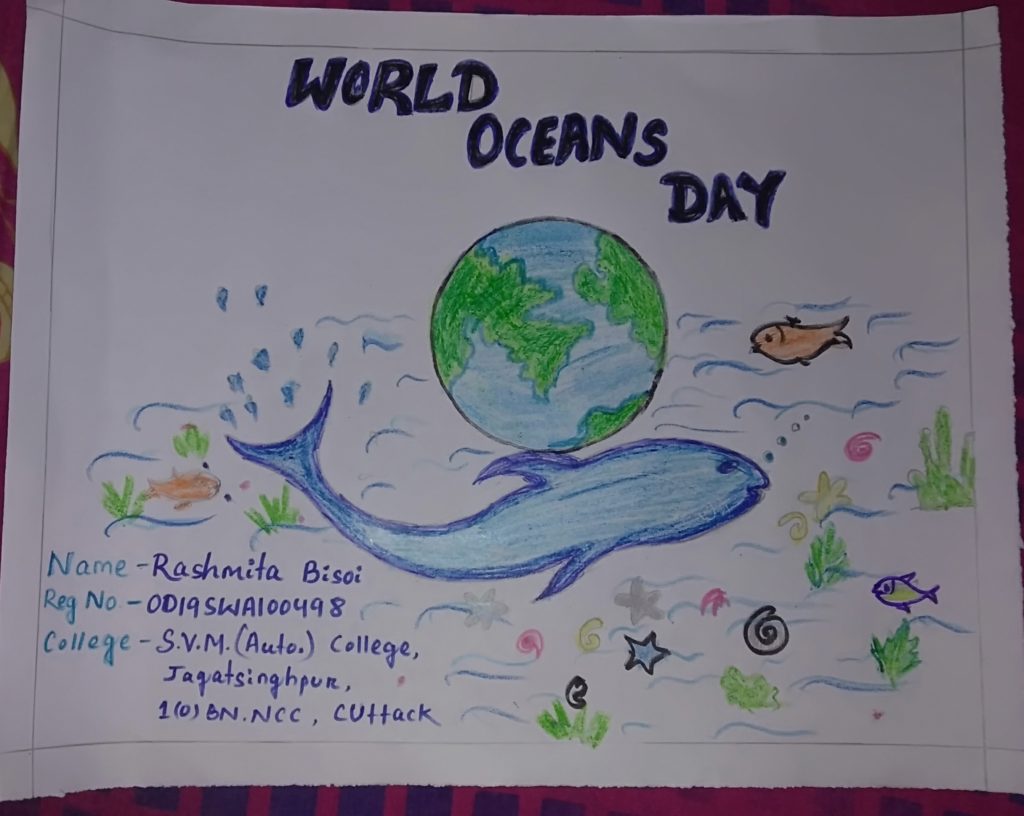 WORLD
OCEANS
DAY
Name - Rashmita Bisoi
Reg No - OD19SWA100498
College - S.V.M.(Auto.) College,
Jagatsinghpur,
1(O) BN.NCC, CUttack